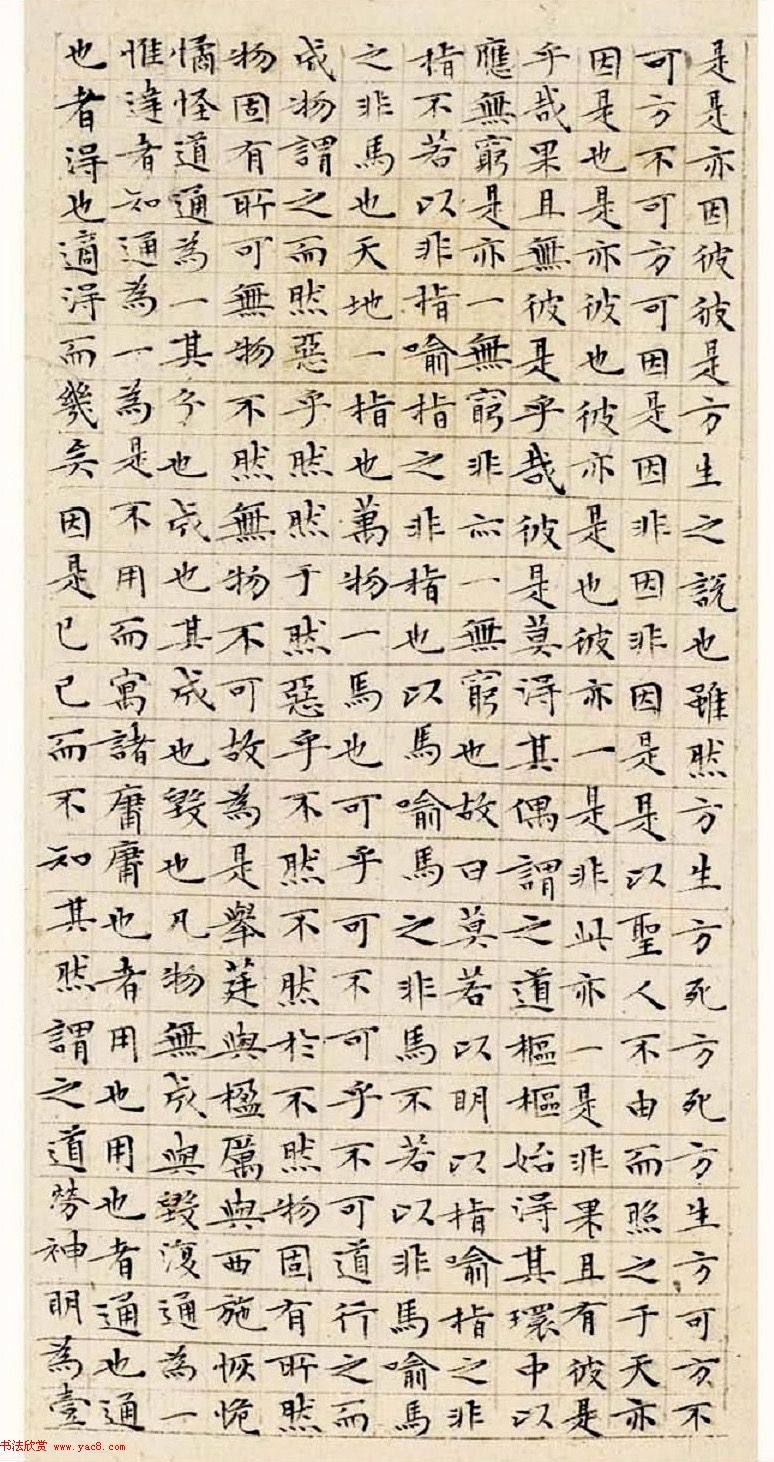 是是亦因彼彼是方生之說也雖然方生方死方死方生方可方不
可方不可方可因是因非因非因是是以聖人不由而照之于天亦
因是也是亦彼也彼亦是也彼亦一是非此亦一是非果且有彼是
乎哉果且無彼是乎哉彼是莫得其偶謂之道樞樞始得其環中以
應無窮是亦一無窮非亦一無窮也故曰莫若以明以指喻指之非
指不若以非指喻指之非指也以馬喻馬之非馬不若以非馬喻馬
之非馬也天地一指也萬物一馬也可乎可不可乎不可道行之而
成物謂之而然惡乎然然于然惡乎不然不然於不然物固有所然
物固有所可無物不然無物不可故為是舉莛與楹厲與西施恢恑
憰怪道通為一其分也成也其成也毀也凡物無成與毀復通為一
惟達者知通為一為是不用而寓諸庸庸也者用也用也者通也通
也者得也適得而幾矣因是已已而不知其然謂之道勞神明為壹
书法欣赏 www.yac8.com